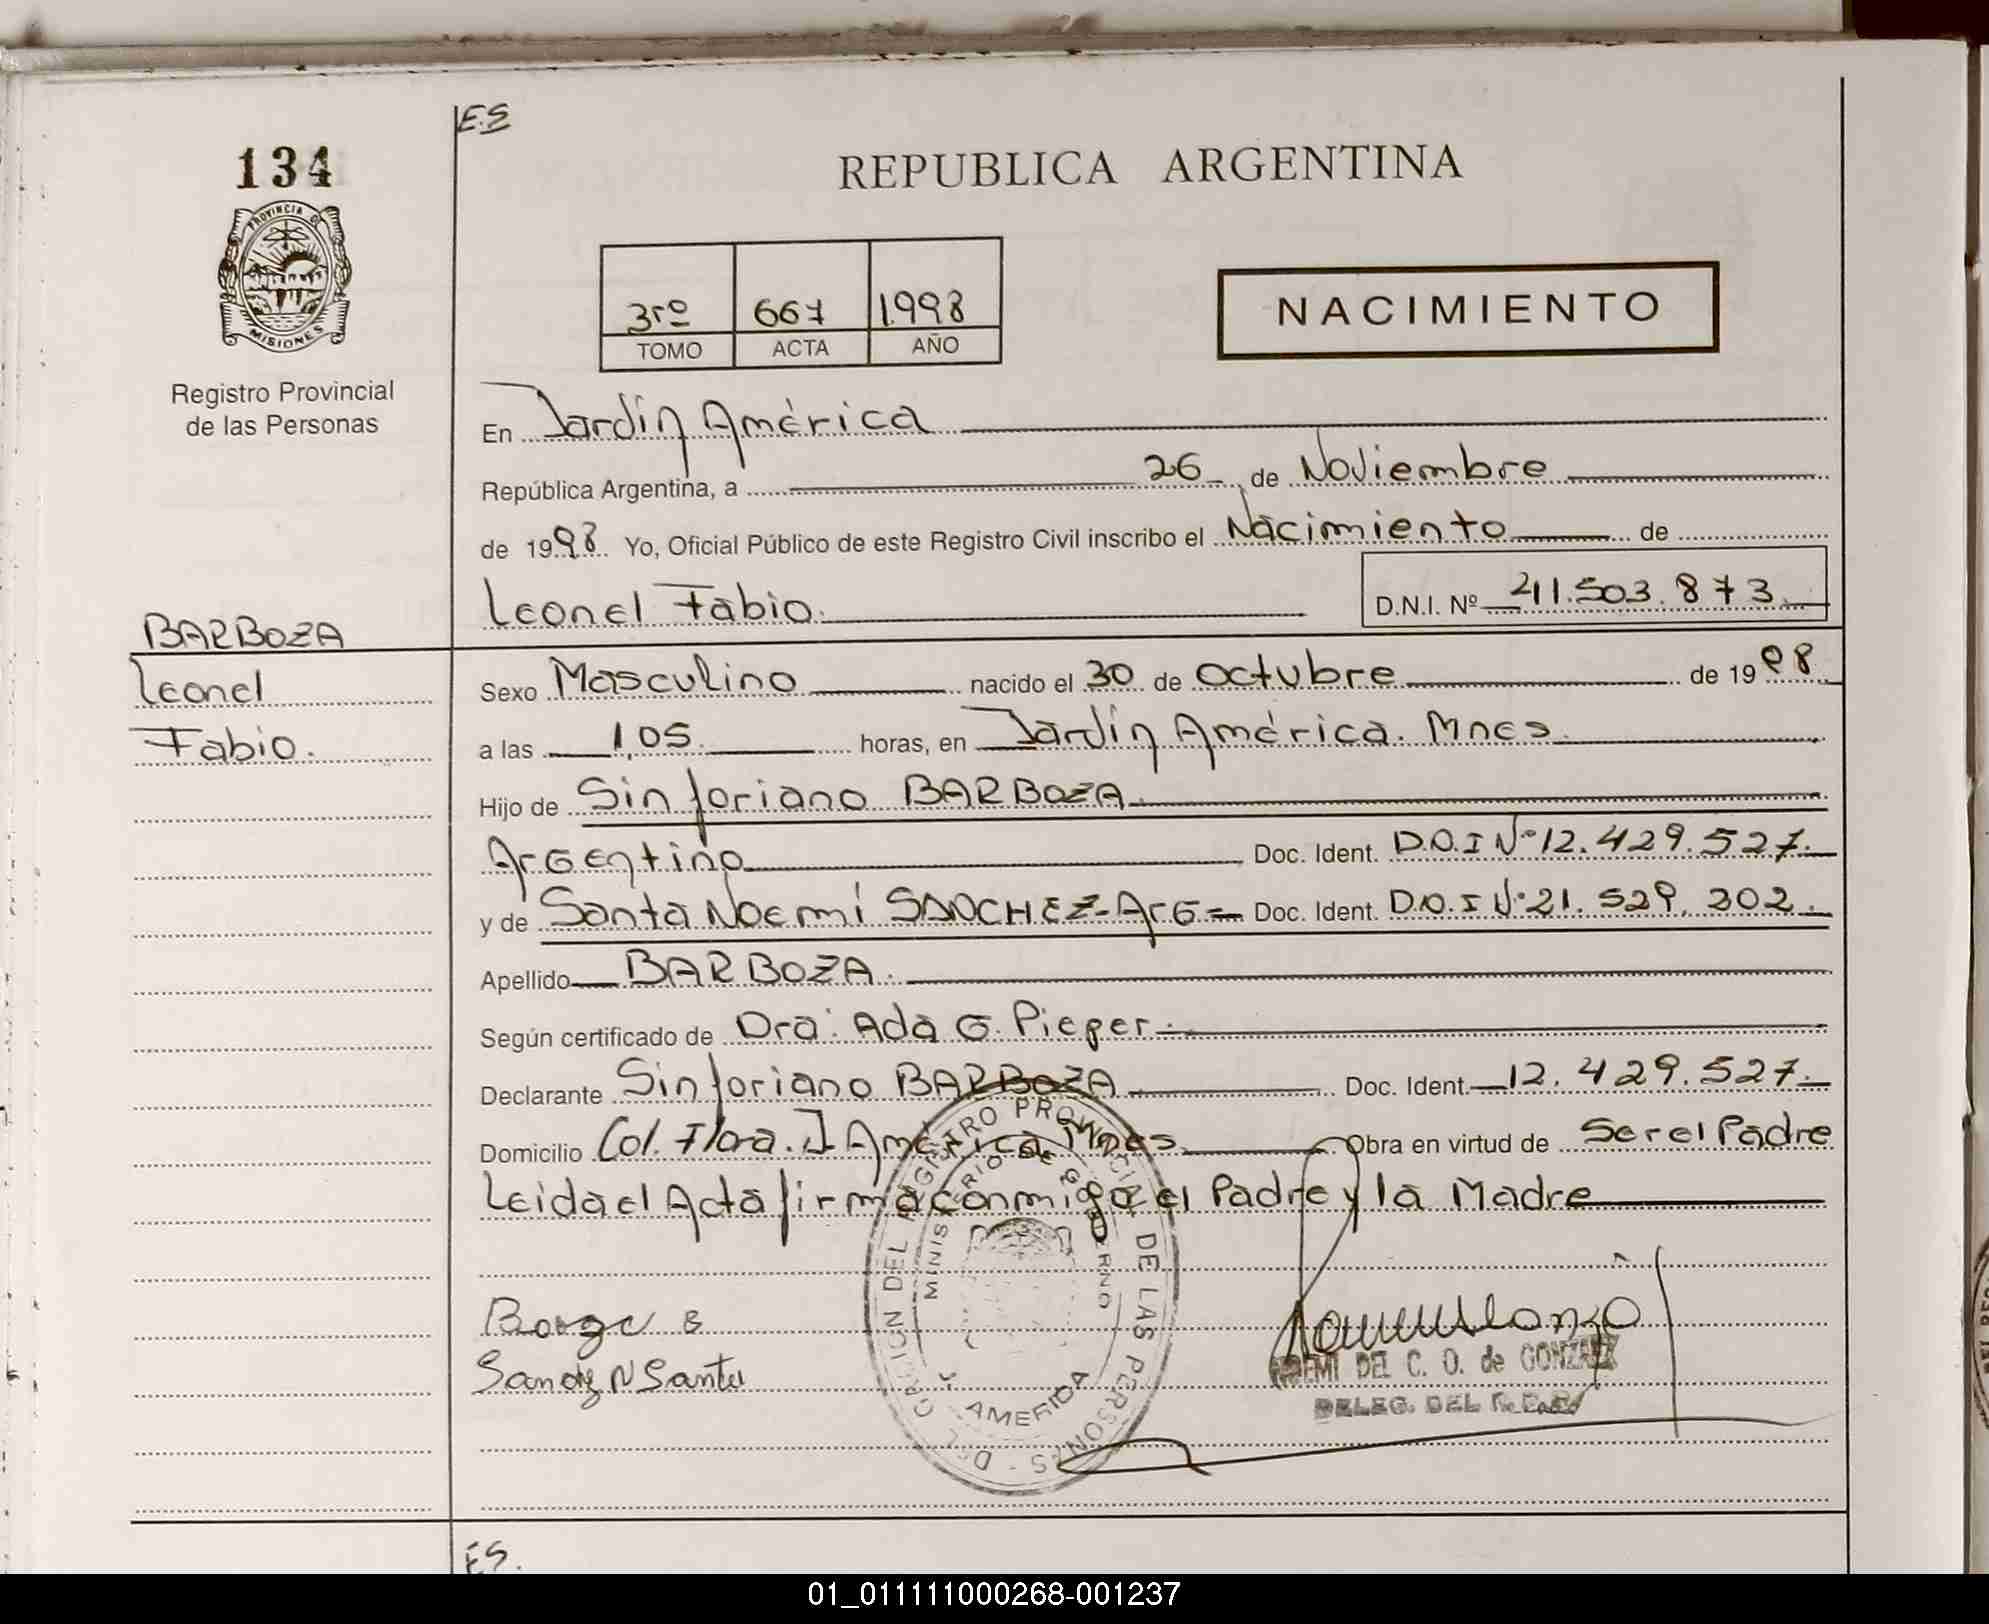 E.S
134
REPUBLICA ARGENTINA
PROVINCIA D
MISIONES
3ro 667 1.998
TOMO ACTA AÑO
NACIMIENTO
Registro Provincial
de las Personas
En Jardín América
República Argentina, a 26 de Noviembre
de 1998 Yo, Oficial Público de este Registro Civil inscribo el Nacimiento de
Leonel Fabio. D.N.I. Nº 41.503.873
BARBOZA
Leonel
Fabio.
Sexo Masculino nacido el 30 de Octubre de 1998
a las 1,05 horas, en Jardín América. Mnes.
Hijo de Sinforiano BARBOZA
Argentino Doc. Ident. D.N.I Nº 12.429.527.
y de Santa Noemí SANCHEZ-Arg= Doc. Ident. D.N.I Nº 21.529.202.
Apellido BARBOZA.
Según certificado de Dra: Ada G. Pieper.
Declarante Sinforiano BARBOZA Doc. Ident. 12.429.527.
Domicilio Col. Flora. J América Mnes Obra en virtud de Ser el Padre
Leida el Acta firma conmigo el Padre y la Madre
DEL REGISTRO PROVINCIAL DE LAS PERSONAS
MINISTERIO DE GOBIERNO
AMERICA
DEL C. O. de GONZALEZ
DELEG. DEL R.
ES.
01_011111000268-001237